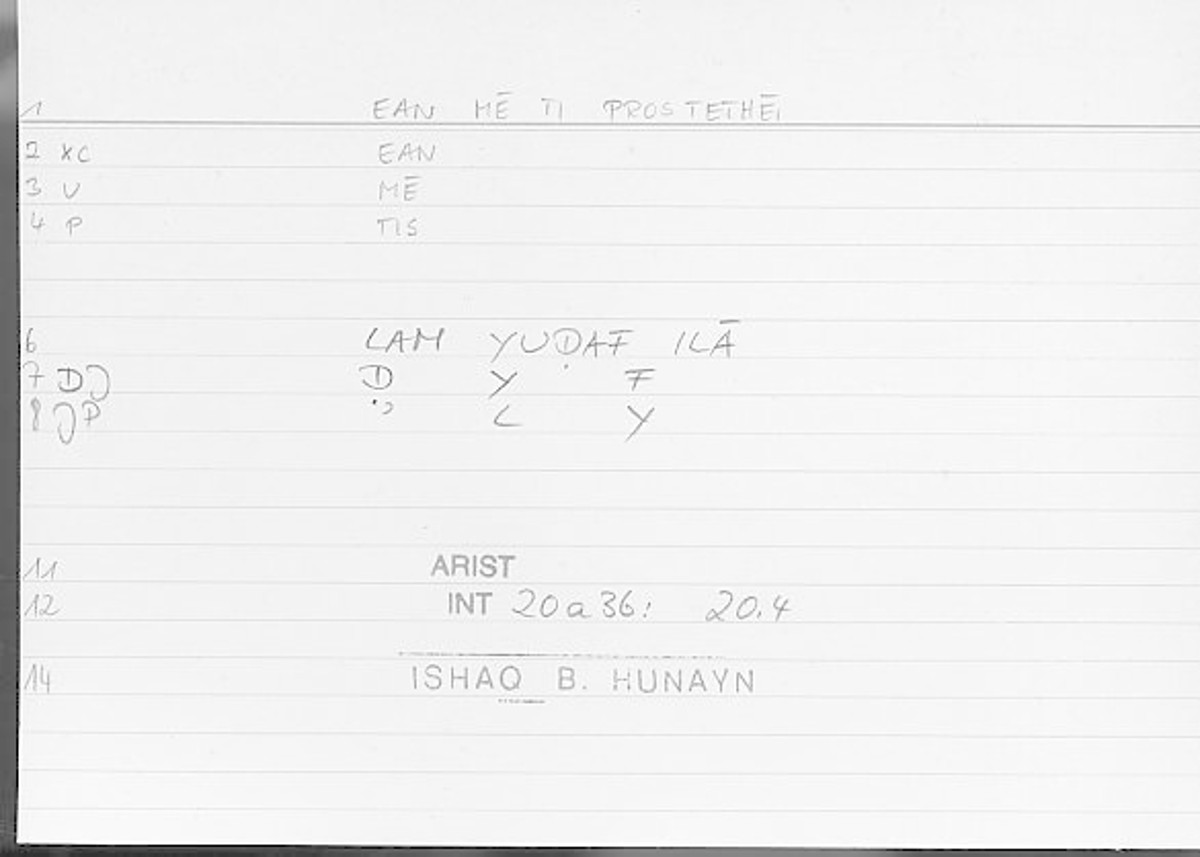 1 EAN MĒ TI PROSTETHĒI
2 XC EAN
3 U MĒ
4 P TIS
6 LAM YUḌAF ILĀ
7 DJ Ḍ Y F
8 JP ʾ L Y
11 ARIST
12 INT 20a36: 20.4
14 ISHAQ B. HUNAYN